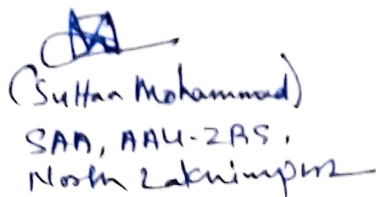 (Sultan Mohammad)
SAA, AAU-ZRS,
North Lakhimpur